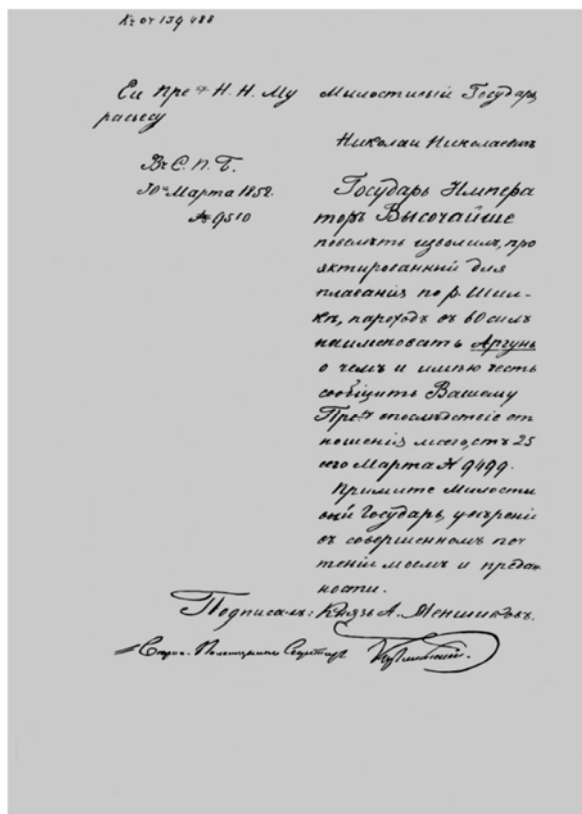 Ей Прев Н. Н. Му
равьеву
Въ С. П. Б.
30го Марта 1852.
№ 9510
Милостивый Государь
Николай Николаевичъ
Государь Импера
торъ Высочайше
повелѣть изволилъ, про
эктированный для
плаванія по р. Шил-
кѣ, пароходъ въ 60 силъ
наименовать Аргунь
о чемъ и имѣю честь
сообщить Вашему
Прев впослѣдствіе от
ношенія моего, отъ 25
сего Марта № 9499.
Примите Милости
вый Государь, увѣреніе
въ совершенномъ поч
теніи моемъ и предан
ности.
Подписалъ: Князь А. Меншиковъ.
Помощникъ Секретаря